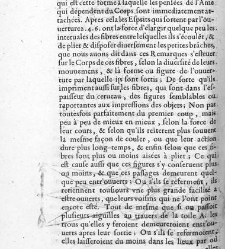 qui est cette forme à laquelle les pensées de l'Ame
qui dépendent du Corps sont immediatement at-
tachées. Apres cela les Esprits qui sortent par l'ou-
verture 4. 6. ont la force d'élargir quelque peu les
intervalles des fibres entre lesquelles ils s'écoulent, &
de plier & disposer diversement les petites branches,
que nous avons dit dans ces Remarques s'estendre
sur le Corps de ces fibres, selon la diversité de leurs
mouvemens, & la forme ou figure de l'ouver-
ture par laquelle ils sont sortis; De sorte qu'ils
impriment aussi sur les fibres, que sont dans l'es-
paisseur du cerveau, des figures semblables ou
rapportantes aux impressions des objets; Non pas
toutesfois parfaitement du premier coup, mais
peu à peu de mieux en mieux, selon la force de
leur cours, & selon qu'ils reiterent plus souvent
la mesme façon de couler, ou que leur action
dure plus long-temps, & enfin selon que ces fi-
bres sont plus ou moins aisées à plier; Ce qui
est cause aussi que ces figures s'y conservent plus
ou moins, & que ces passages demeurent quel-
que peu entr'ouverts; Ou s'ils se refermoient,
retiendroient toûjours une plus grande facilité à
estre ouverts, que leurs voisins qui ne l'ont point
encore esté. Tout de mesme que si on passoit
plusieurs aiguilles au travers de la toile A. les
trous qu'elles y feroient demeureroient
apres leur sortie; Ou s'ils se refermoient
elles laisseroient du moins dans les lieux par où